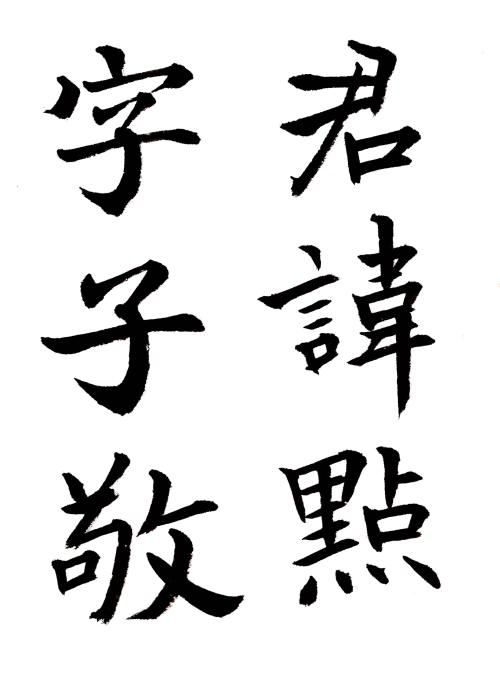 君諱點
字子敬